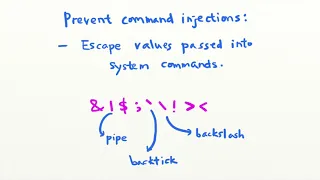 Prevent command injections:
- Escape values passed into
system commands.
&|$;`\!><
pipe
backslash
backtick